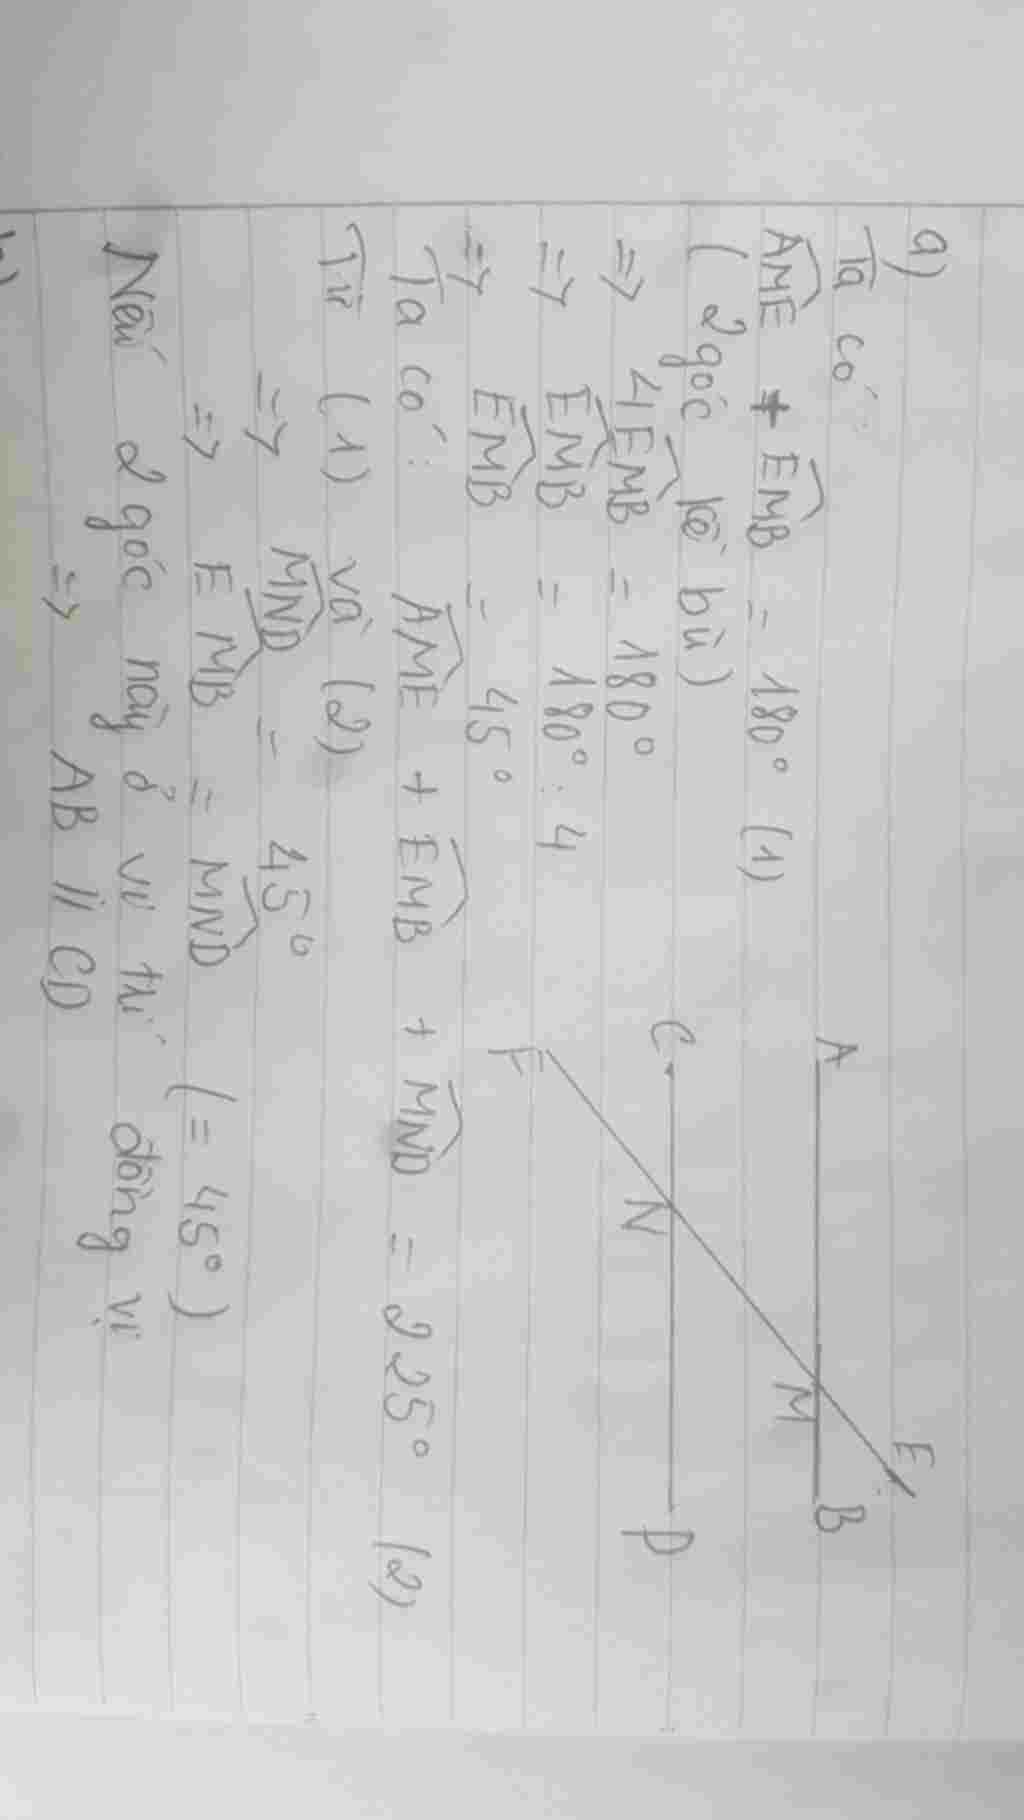 a)
Ta có
AME + EMB = 180° (1)
( 2 góc kề bù )
=> 4EMB = 180°
=> EMB = 180° : 4
=> EMB = 45°
Ta có : AME + EMB + MND = 225° (2)
Từ (1) và (2)
=> MND = 45°
=> EMB = MND ( = 45° )
Nếu 2 góc này ở vị trí đồng vị
=> AB // CD
b)
E
A
M
B
C
N
D
F